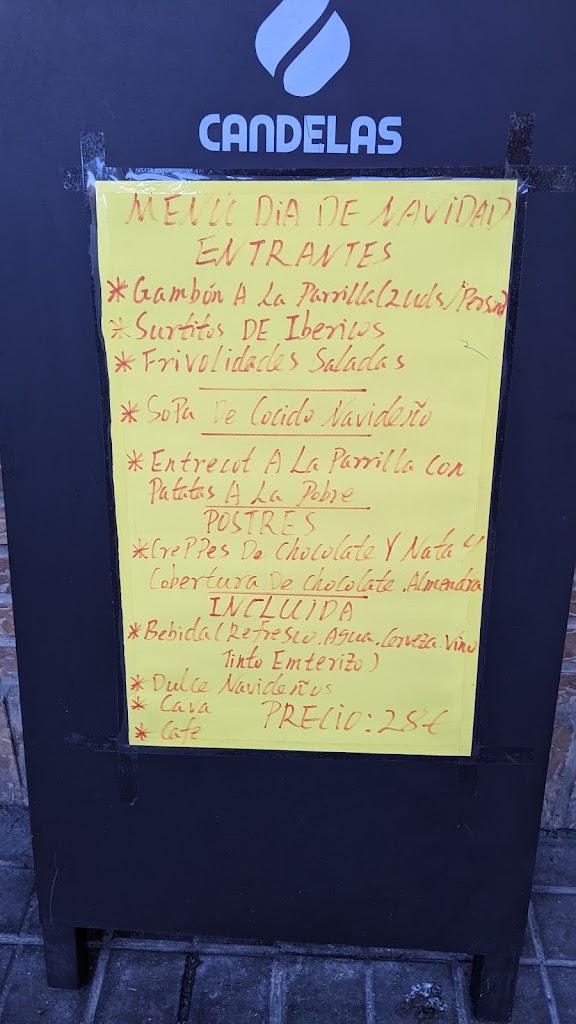 CANDELAS
MENÚ DiA DE NAVIDAD
ENTRANTES
* Gambón A La Parrilla (2uds/Person)
* Surtitos DE Ibericos
* Frivolidades Saladas
* SoPa De Cocido Navideño
* Entrecot A La Parrilla con
Patatas A La Pobre
POSTRES
* CrePPes De chocolate Y Nata Y
Cobertura De chocolate. Almendra
INCLUIDA
* Bebida (Refresco. Agua. Cerveza. Vino
Tinto Emterizo)
* Dulce Navideños
* Cava PRECiO: 28€
* Cafe